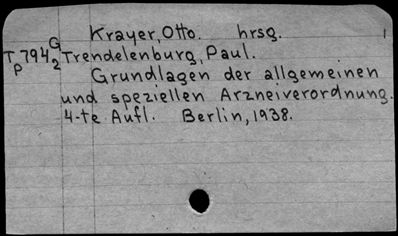 Krayer, Otto. hrsg. 1
TP794G2 Trendelenburg, Paul.
Grundlagen der allgemeinen
und speziellen Arzneiverordnung.
4-te Aufl. Berlin, 1938.